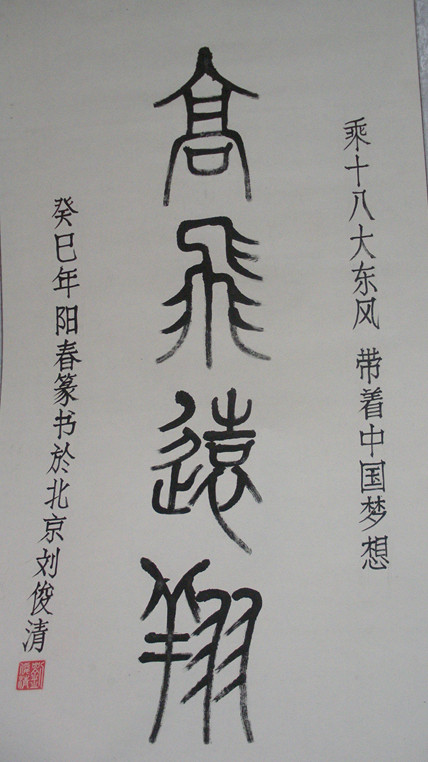 乘十八大东风 带着中国梦想
高飛遠翔
癸巳年阳春篆书於北京刘俊清